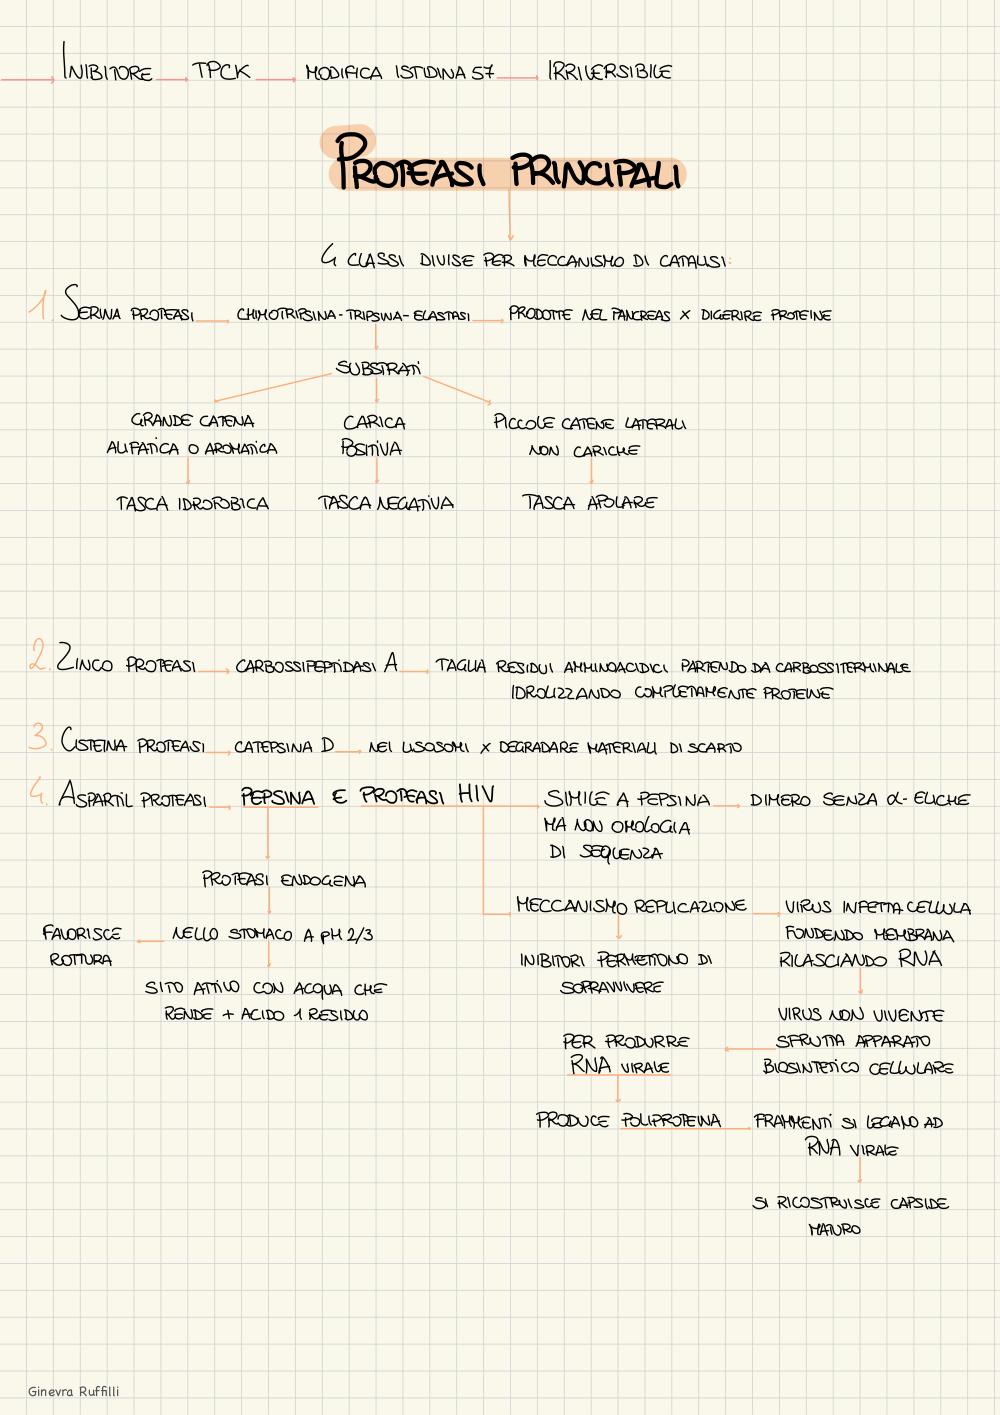 INIBITORE → TPCK → MODIFICA ISTIDINA 57 → IRRIVERSIBILE
PROTEASI PRINCIPALI
4 CLASSI DIVISE PER MECCANISMO DI CATALISI:
1. SERINA PROTEASI → CHIMOTRIPSINA - TRIPSINA - ELASTASI → PRODOTTE NEL PANCREAS X DIGERIRE PROTEINE
SUBSTRATI
GRANDE CATENA
ALIFATICA O AROMATICA
TASCA IDROFOBICA
CARICA
POSITIVA
TASCA NEGATIVA
PICCOLE CATENE LATERALI
NON CARICHE
TASCA APOLARE
2. ZINCO PROTEASI → CARBOSSIPEPTIDASI A → TAGLIA RESIDUI AMMINOACIDICI PARTENDO DA CARBOSSITERMINALE
IDROLIZZANDO COMPLETAMENTE PROTEINE
3. CISTEINA PROTEASI → CATEPSINA D → NEI LISOSOMI X DEGRADARE MATERIALI DI SCARTO
4. ASPARTIL PROTEASI → PEPSINA E PROTEASI HIV → SIMILE A PEPSINA → DIMERO SENZA α-ELICHE
MA NON OMOLOGIA
DI SEQUENZA
PROTEASI ENDOGENA
NELLO STOMACO A PH 2/3
FAVORISCE
ROTTURA
SITO ATTIVO CON ACQUA CHE
RENDE + ACIDO 1 RESIDUO
MECCANISMO REPLICAZIONE → VIRUS INFETTA CELLULA
FONDENDO MEMBRANA
RILASCIANDO RNA
INIBITORI PERMETTONO DI
SOPRAVVIVERE
VIRUS NON VIVENTE
SFRUTTA APPARATO
BIOSINTETICO CELLULARE
PER PRODURRE
RNA VIRALE
PRODUCE POLIPROTEINA → FRAMMENTI SI LEGANO AD
RNA VIRALE
SI RICOSTRUISCE CAPSIDE
MATURO
Ginevra Ruffilli